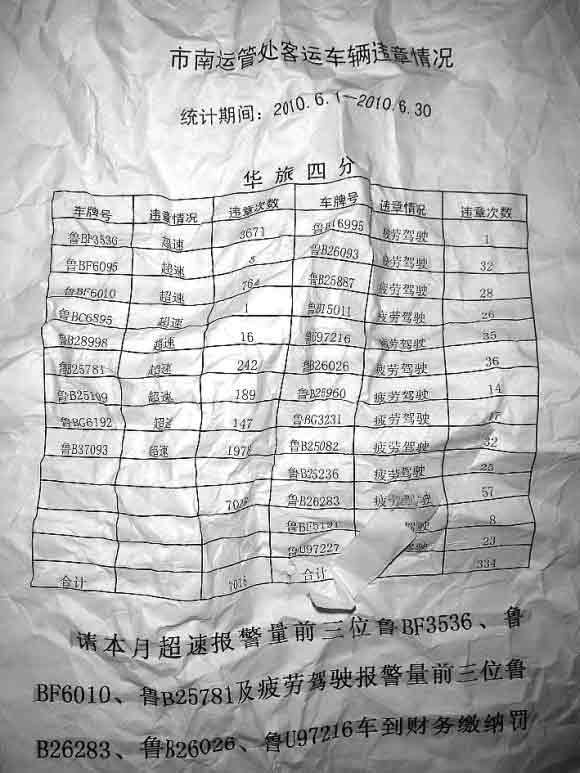 市南运管处客运车辆违章情况
统计期间：2010.6.1—2010.6.30
华旅四分
车牌号 违章情况 违章次数 车牌号 违章情况 违章次数
鲁BF3536 超速 3671 疲劳驾驶 1
鲁BF6095 超速 鲁B26093 疲劳驾驶 32
鲁BF6010 超速 764 鲁B25887 疲劳驾驶 28
鲁BC6895 超速 1 疲劳驾驶 26
鲁B28998 超速 16 鲁U97216 疲劳驾驶 35
鲁B25781 超速 242 鲁B26026 疲劳驾驶 36
鲁B25109 超速 189 鲁B25960 疲劳驾驶 14
鲁BG6192 超速 147 鲁BG3231 疲劳驾驶
鲁B37093 超速 鲁B25082 疲劳驾驶 32
鲁B25236 疲劳驾驶 25
鲁B26283 疲劳驾驶 57
驾驶 8
鲁U97227 驾驶 23
合计 合计 334
请本月超速报警量前三位鲁BF3536、鲁
BF6010、鲁B25781及疲劳驾驶报警量前三位鲁
B26283、鲁B26026、鲁U97216车到财务缴纳罚